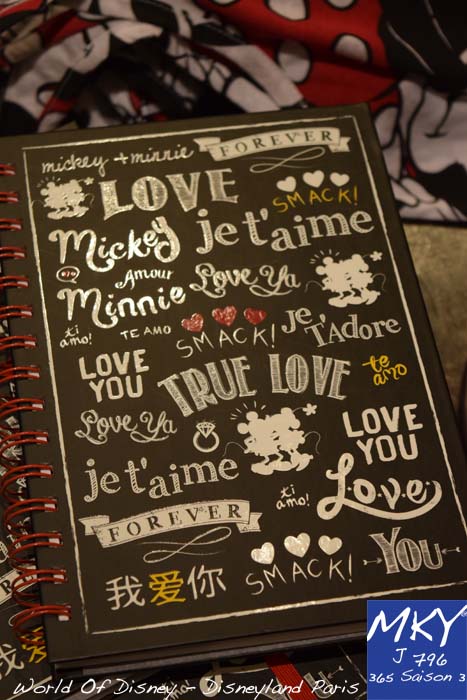 mickey + minnie FOREVER
LOVE SMACK!
Mickey je t'aime
Amour Love Ya
Minnie
ti amo! TE AMO SMACK! Je T'Adore
LOVE YOU TRUE LOVE te amo
Love Ya LOVE YOU
je t'aime ti amo! Love
FOREVER
我爱你 SMACK! YOU
我
MKY
J 796
365 Saison 3
World Of Disney - Disneyland Paris